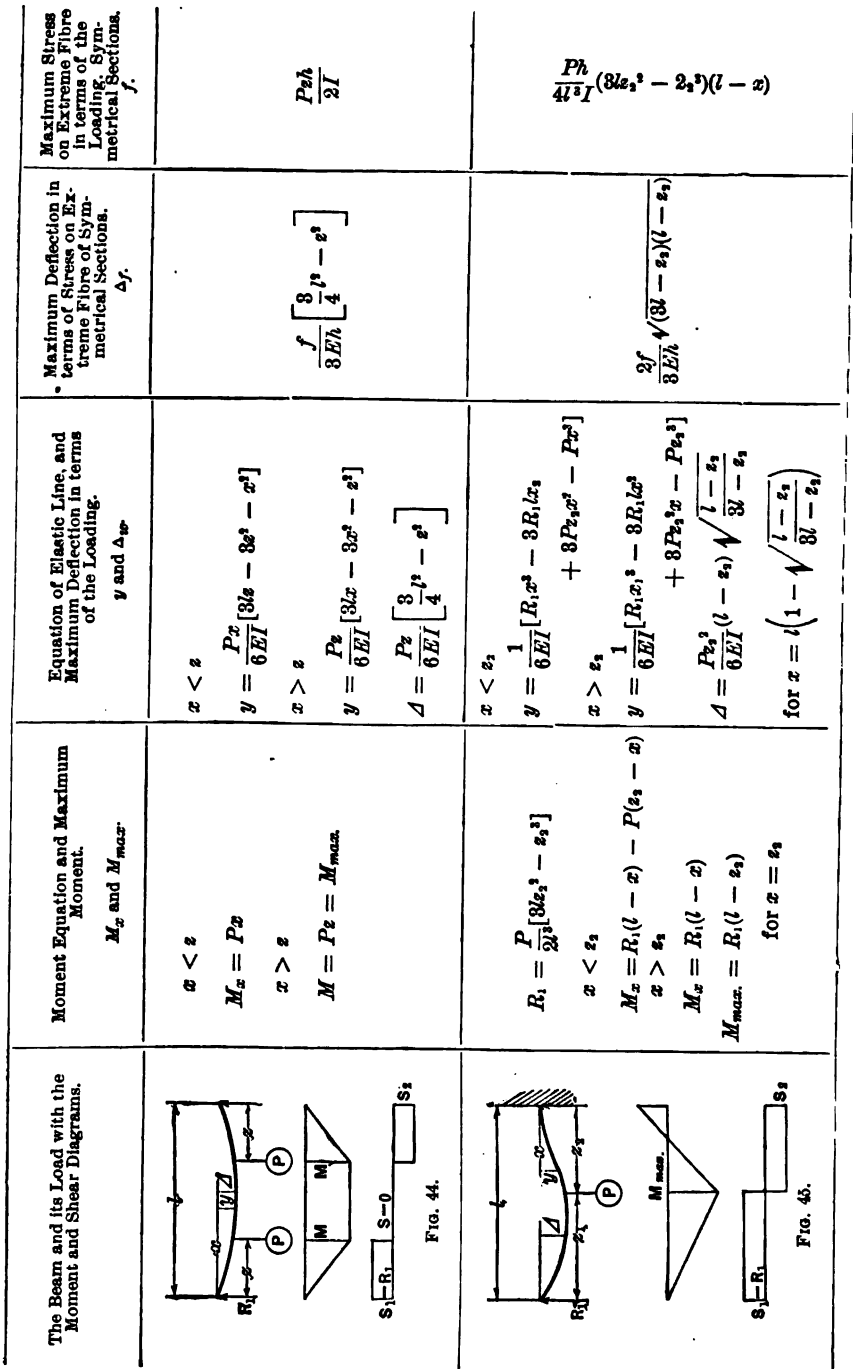 The Beam and its Load with the
Moment and Shear Diagrams.
Moment Equation and Maximum
Moment.
M_x and M_max.
Equation of Elastic Line, and
Maximum Deflection in terms
of the Loading.
y and Δ_w.
Maximum Deflection in
terms of Stress on Ex-
treme Fibre of Sym-
metrical Sections.
Δ_f.
Maximum Stress
on Extreme Fibre
in terms of the
Loading. Sym-
metrical Sections.
f.
l
x
y Δ
R₁
z
z
P
P
M
M
S₁=R₁
S=0
S₂
FIG. 44.
x < z
M_x = Px
x > z
M = Pz = M_max.
x < z
y = Px/6EI [3lz - 3z² - x²]
x > z
y = Pz/6EI [3lx - 3x² - z²]
Δ = Pz/6EI [3/4 l² - z²]
f/3Eh [3/4 l² - z²]
Pzh/2I
l
Δ
y
x
R₁
z₁
z₂
P
M max.
S₁=R₁
S₂
FIG. 45.
R₁ = P/2l³ [3lz₂² - z₂³]
x < z₂
M_x = R₁(l - x) - P(z₂ - x)
x > z₂
M_x = R₁(l - x)
M_max. = R₁(l - z₂)
for x = z₂
x < z₂
y = 1/6EI [R₁x³ - 3R₁lx₂
+ 3Pz₂x² - Px³]
x > z₂
y = 1/6EI [R₁x₁³ - 3R₁lx²
+ 3Pz₂²x - Pz₂³]
Δ = Pz₂²/6EI (l - z₂) √(l - z₂/3l - z₂)
for x = l(1 - √(l - z₂/3l - z₂))
2f/3Eh √(3l - z₂)(l - z₂)
Ph/4l³I (3lz₂² - 2₂³)(l - x)